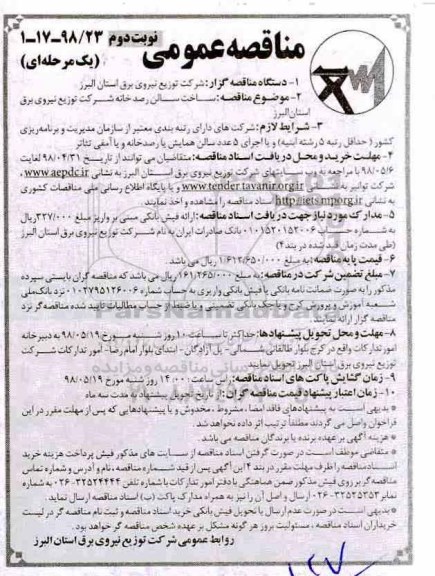 نوبت دوم ۹۸/۲۳-۱۷-۱
مناقصه عمومی (یک مرحله‌ای)
۱- دستگاه مناقصه گزار: شرکت توزیع نیروی برق استان البرز
۲- موضوع مناقصه: ساخت سالن رصد خانه شرکت توزیع نیروی برق
استان البرز
۳- شرایط لازم: شرکت های دارای رتبه بندی معتبر از سازمان مدیریت و برنامه‌ریزی
کشور (حداقل رتبه ۵ رشته ابنیه) و یا اجرای ۵ عدد سالن همایش یا رصدخانه و یا آمفی تئاتر
۴- مهلت خرید و محل دریافت اسناد مناقصه: متقاضیان می توانند از تاریخ ۹۸/۰۴/۳۱ لغایت
۹۸/۰۵/۶ با مراجعه به وب سایتهای شرکت توزیع نیروی برق استان البرز به نشانی www.aepdc.ir،
شرکت توانیر به نشانی www.tender.tavanir.org.ir و یا پایگاه اطلاع رسانی ملی مناقصات کشوری
به نشانی http://iets.mporg.ir اسناد مناقصه را مشاهده و اخذ نمایند
۵- مدارک مورد نیاز جهت دریافت اسناد مناقصه: ارائه فیش بانکی مبنی بر واریز مبلغ ۳۲۷/۰۰۰ریال
به شماره حساب ۰۱۰۱۵۲۰۱۵۲۰۰۶ بانک صادرات ایران به نام شرکت توزیع نیروی برق استان البرز
(طی مدت زمان قید شده در بند ۴)
۶- قیمت پایه مناقصه: به مبلغ ۱/۶۱۲/۶۵۰/۰۰۰ ریال می باشد.
۷- مبلغ تضمین شرکت در مناقصه: به مبلغ ۱۶۱/۲۶۵/۰۰۰ ریال می باشد که مناقصه گران بایستی سپرده
مذکور را به صورت ضمانت نامه بانکی یا فیش بانکی واریزی به حساب شماره ۰۱۰۲۷۹۵۱۲۶۰۰۶ نزد بانک ملی
شعبه آموزش و پرورش کرج و یا چک بانکی تضمینی و یا ضبط از حساب مطالبات تایید شده مناقصه گر نزد
مناقصه گزار ارائه نمایند.
۸- مهلت و محل تحویل پیشنهادها: حداکثر تا ساعت ۱۰ روز شنبه مورخ ۹۸/۰۵/۱۹ به دبیرخانه
امور تدارکات واقع در کرج بلوار طالقانی شمالی- پل آزادگان - ابتدای بلوار امام رضا- امور تدارکات شرکت
توزیع نیروی برق استان البرز تحویل نمایند
۹- زمان گشایش پاکت های اسناد مناقصه: راس ساعت ۱۴:۰۰ روز شنبه مورخ ۹۸/۰۵/۱۹
۱۰- زمان اعتبار پیشنهاد قیمت مناقصه گران: از تاریخ تحویل پیشنهاد به مدت سه ماه
* بدیهی است به پیشنهادهای فاقد امضا، مشروط، مخدوش و یا پیشنهادهایی که پس از مهلت مقرر در این
فراخوان واصل می گردند مطلقا ترتیب اثر داده نخواهد شد
* هزینه آگهی بر عهده برنده یا برندگان مناقصه می باشد.
* متقاضی موظف است در صورت گرفتن اسناد مناقصه از سایت های مذکور فیش پرداخت هزینه خرید
اسناد مناقصه را ظرف مهلت مقرر در بند ۴ این آگهی پس از قید شماره مناقصه، نام و آدرس و شماره تماس
مناقصه گر بر روی فیش مذکور ضمن هماهنگی با دفتر امور تدارکات با شماره تلفن ۳۲۵۲۴۴۴۴-۰۲۶ به شماره
نمابر ۳۲۵۲۵۳۵۳-۰۲۶ ارسال و اصل آن را نیز به همراه مدارک پاکت (ب) اسناد مناقصه ارسال نماید.
* بدیهی است در صورت عدم ارسال یا تحویل فیش بانکی خرید اسناد مناقصه و ثبت نام مناقصه گر در لیست
خریداران اسناد مناقصه، مسئولیت بروز هر گونه مشکل بر عهده شخص مناقصه گر خواهد بود.
روابط عمومی شرکت توزیع نیروی برق استان البرز